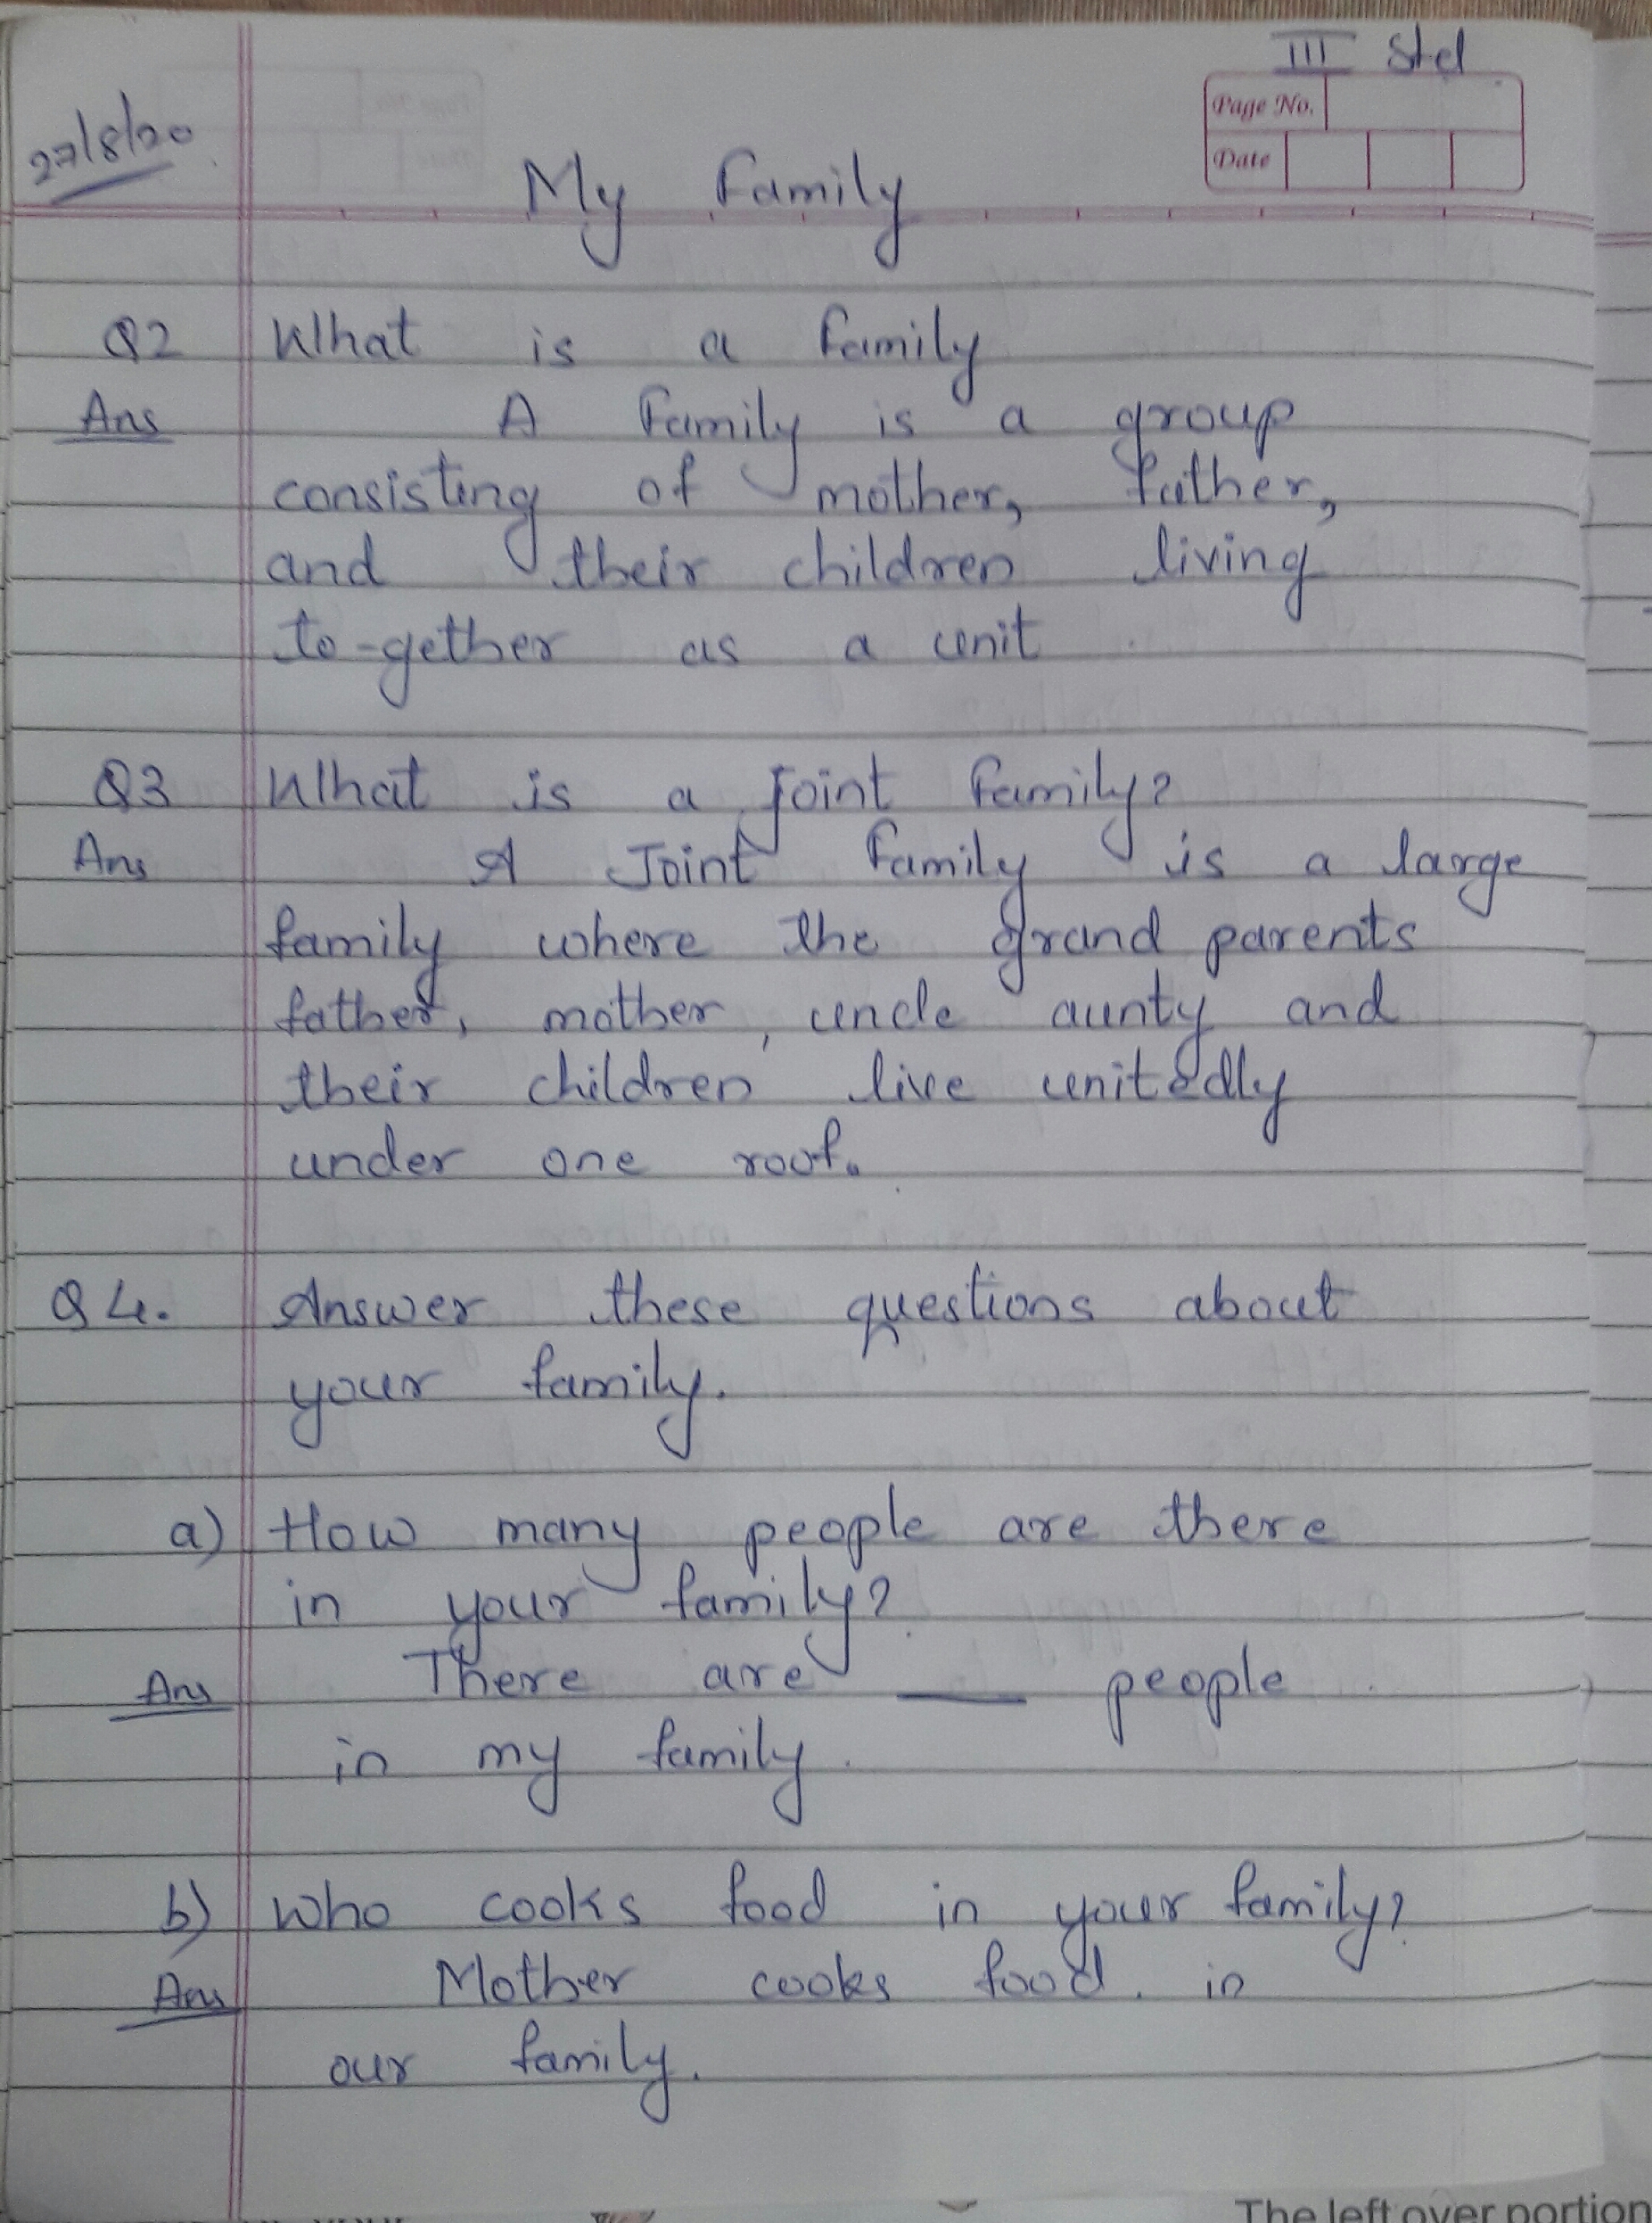 III Std
Page No.
Date
27/8/20
My Family
Q2 What is a family
Ans A family is a group
consisting of mother, father,
and their children living
to-gether as a unit
Q3 What is a joint family?
Ans A Joint family is a large
family where the grand parents
father, mother, uncle aunty and
their children live unitedly
under one roof.
Q4. Answer these questions about
your family.
a) How many people are there
in your family?
Ans There are ___ people
in my family.
b) Who cooks food in your family?
Ans Mother cooks food. in
our family.
The left over portion